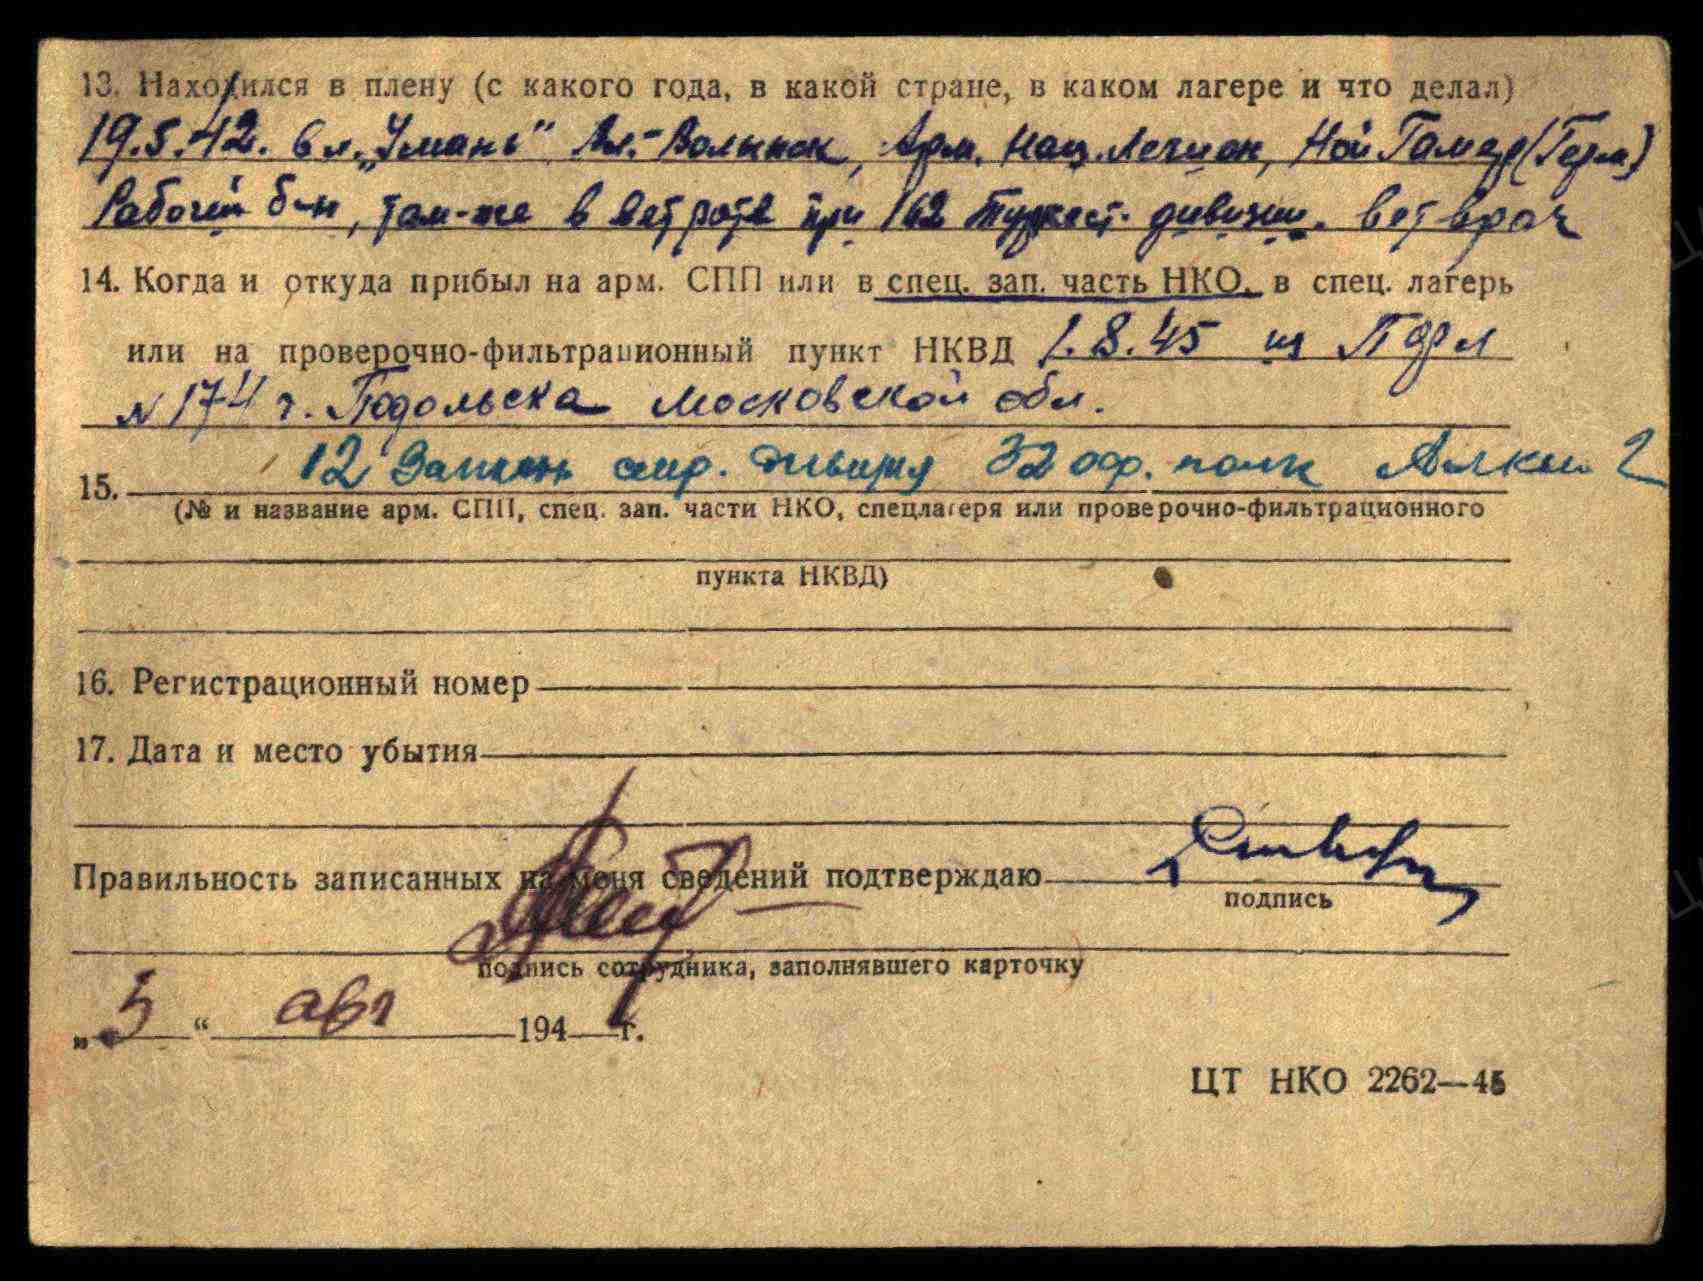 13. Находился в плену (с какого года, в какой стране, в каком лагере и что делал)
19.5.42. в л. „Умань" Вл.-Волынск, Арм. Нац. Легион, Ной Гамер (Герм)
Рабочий б-н, там-же в ветроте при 162 Туркест. дивизии. ветврач
14. Когда и откуда прибыл на арм. СПП или в спец. зап. часть НКО, в спец. лагерь
или на проверочно-фильтрационный пункт НКВД 1.8.45 из
N 174 г. Подольска Московской обл.
12 стр. дивизия 32 оф. полк Алкино 2
15.
(№ и название арм. СПП, спец. зап. части НКО, спецлагеря или проверочно-фильтрационного
пункта НКВД)
16. Регистрационный номер
17. Дата и место убытия
Правильность записанных на меня сведений подтверждаю
подпись
подпись сотрудника, заполнявшего карточку
„ 5 " авг 194 г.
ЦТ НКО 2262—45